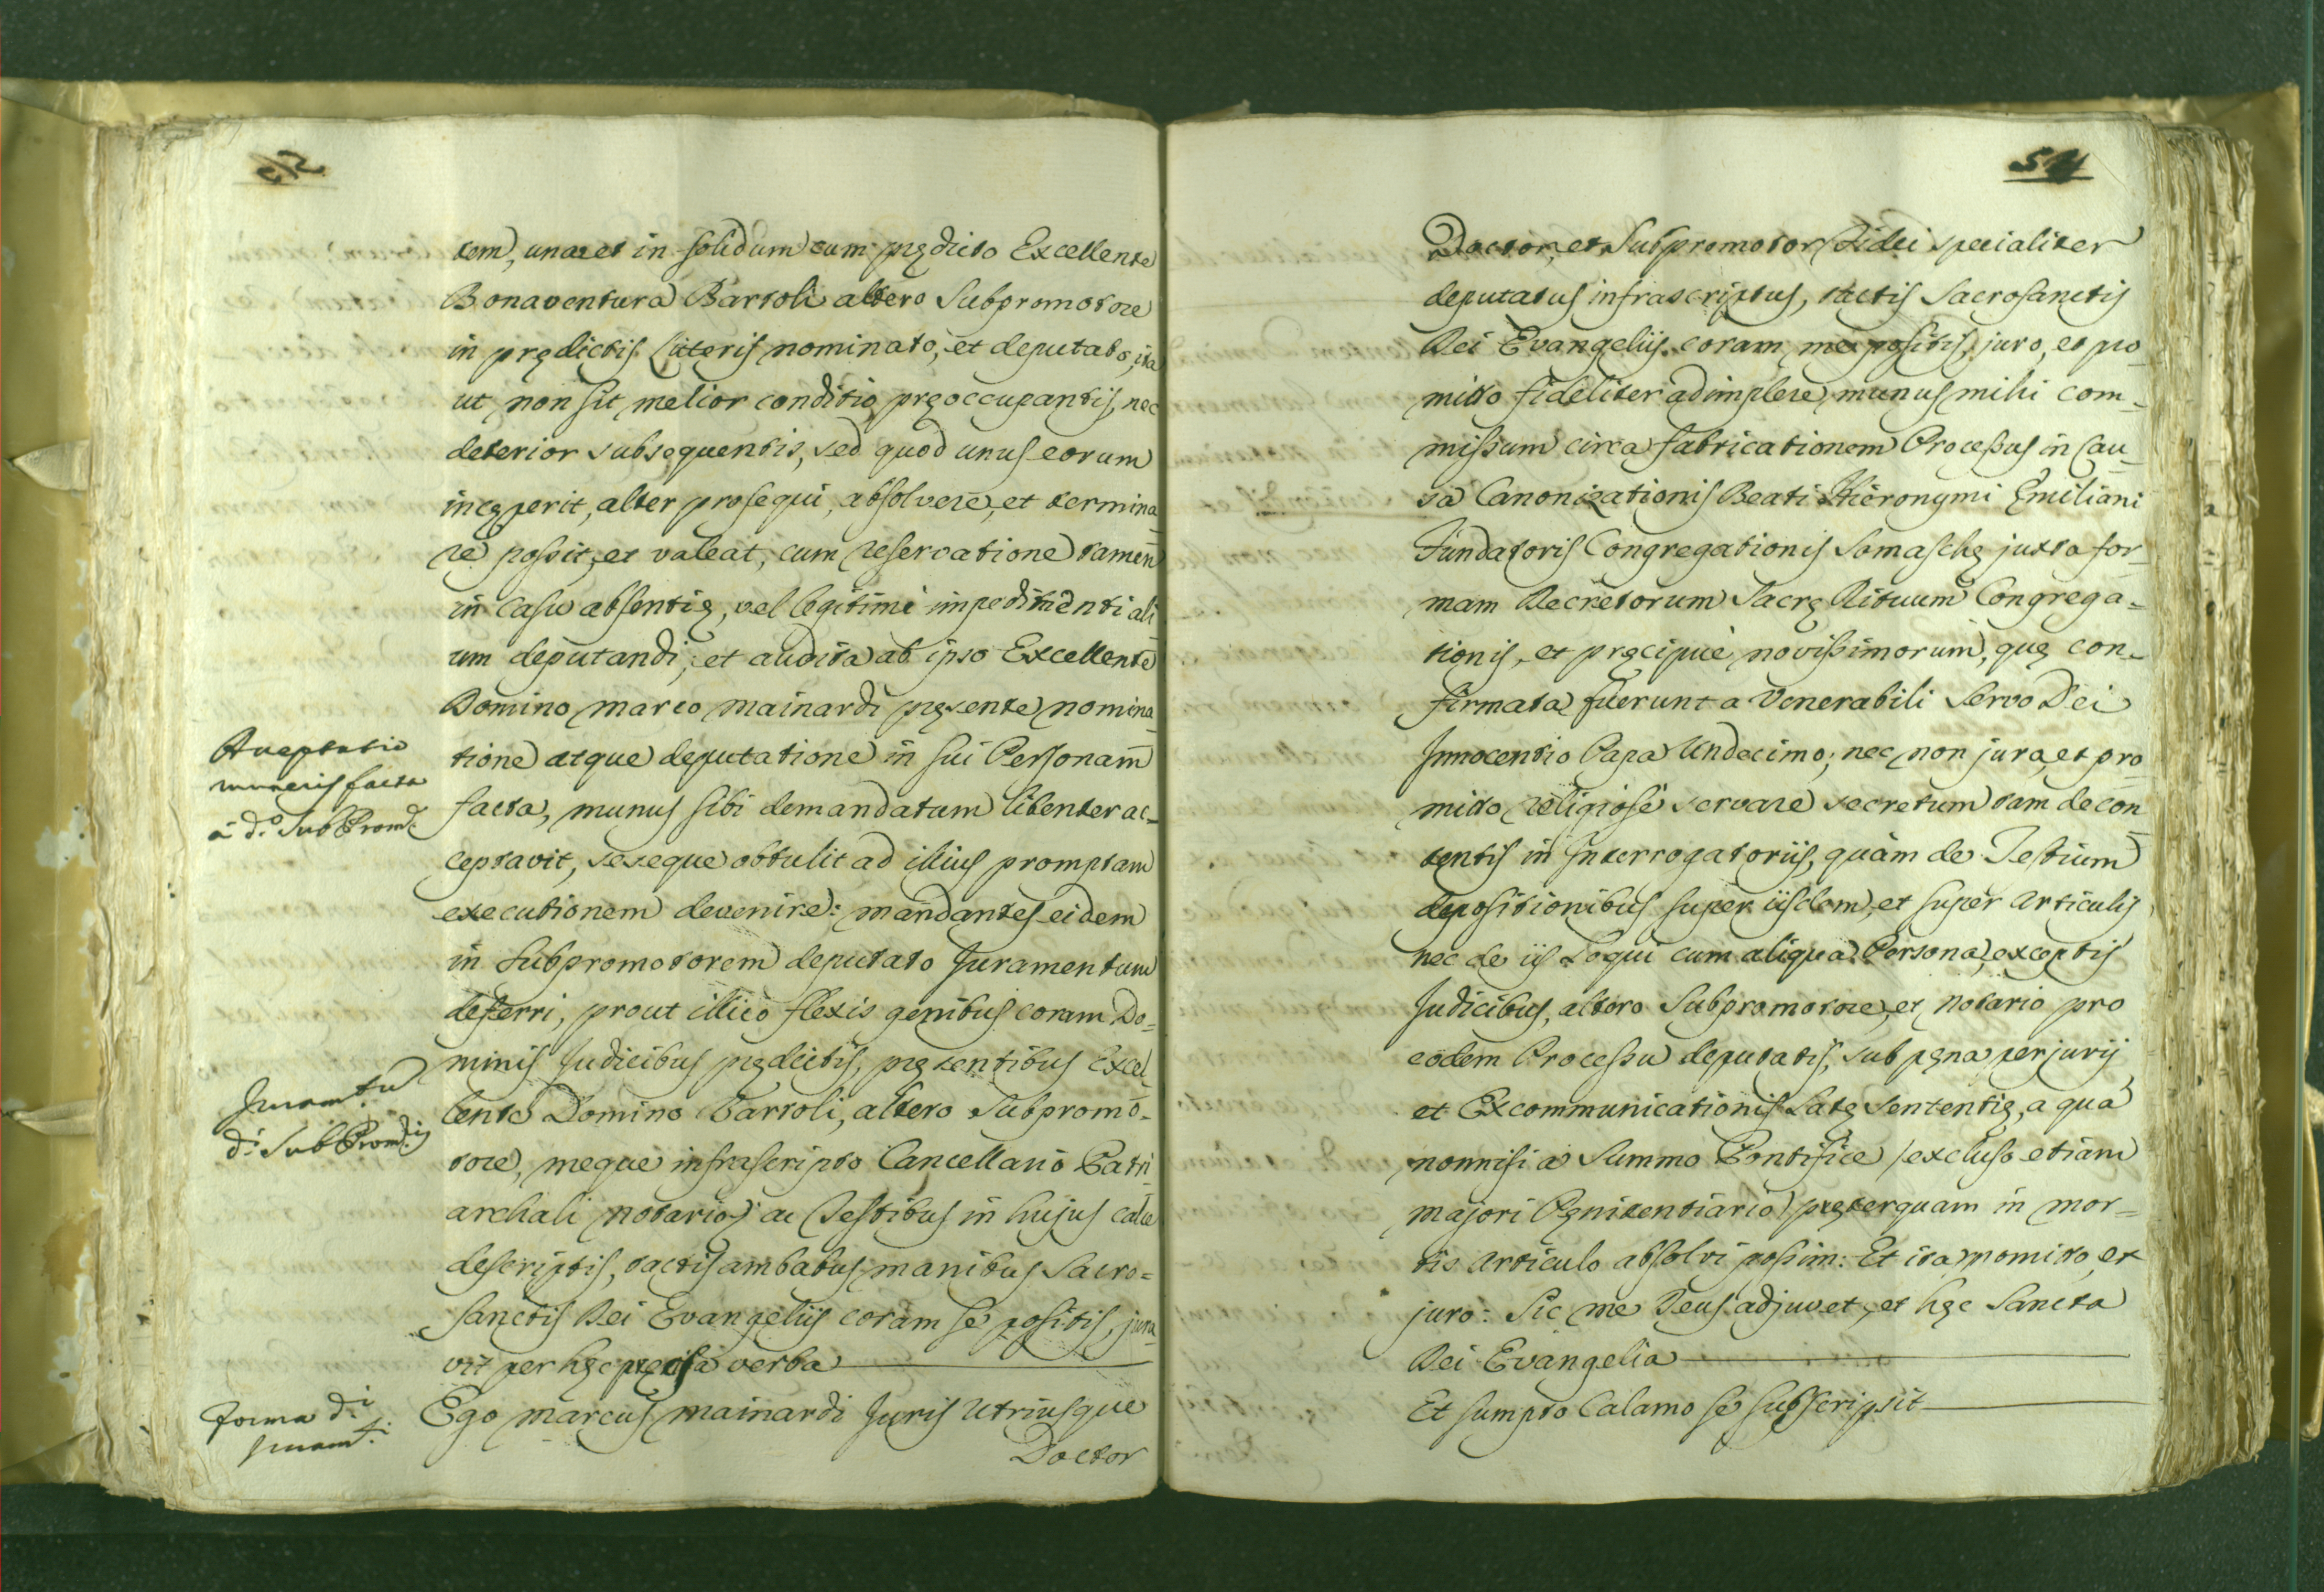 tem, una et in solidum cum prędicto Excellente
Bonaventura Bartoli altero Subpromotore
in prędictis Literis nominato, et deputato, ita
ut non sit melior conditio pręoccupantis, nec
deterior subsequentis, sed quod unus eorum
incęperit, alter prosequi, absolvere, et termina
re possit, et valeat, cum reservatione tamen
in casu absentię, vel legitimi impedimenti ali
um deputandi; et audita ab ipso Excellente
Domino Marco Mainardi pręsente nomina
tione atque deputatione in sui Personam
facta, munus sibi demandatum libenter ac-
ceptavit, seseque obtulit ad illius promptam
executionem devenire: mandantes eidem
in Subpromotorem deputato Juramentum
deferri, prout illico flexis genibus coram Do-
minis Judicibus prędictis, pręsentibus Excel
lente Domino Bartoli, altero Subpromo-
tore, meque infrascripto Cancellario Patri
archali Notario, ac Testibus in hujus calce
descriptis, tactis ambabus manibus Sacro=
sanctis Dei Evangeliis coram se positis, jura
vit per hęc pręcisa verba
Ego Marcus Mainardi Juris Utriusque
Doctor
Acceptatio
muneris facta
à d.º SubProm.e
Juram.tu
d.i SubProm.is
Forma d.i
Juram.ti
511
Doctor, et Subpromotor Fidei specialiter
deputatus infrascriptus, tactis Sacrosanctis
Dei Evangeliis coram me positis, juro, et pro
mitto fideliter adimplere munus mihi com-
missum circa fabricationem Processus in Cau
sa Canonizationis Beati Hieronymi Ęmiliani
Fundatoris Congregationis Somaschę juxta for
mam Decretorum Sacrę Rituum Congrega-
tionis, et pręcipuè novissimorum, quę con-
firmata fuerunt a Venerabili Servo Dei
Innocentio Papa Undecimo; nec non juro, et pro
mitto religiosè servare secretum tam de con
tentis in Interrogatoriis, quàm de Testium
depositionibus super iisdem, et super Articulis
nec de iis loqui cum aliqua Persona, exceptis
Judicibus, altero Subpromotore, et Notario pro
eodem Processu deputatis, sub pęna perjurij
et Excommunicationis Latę Sententię, a qua
nonnisi a Summo Pontifice /excluso etiam
Majori Pęnitentiario/ pręterquam in mor-
tis articulo absolvi possim: Et ita promitto, et
juro: Sic me Deus adjuvet, et hęc Sancta
Dei Evangelia
Et sumpto Calamo se subscripsit